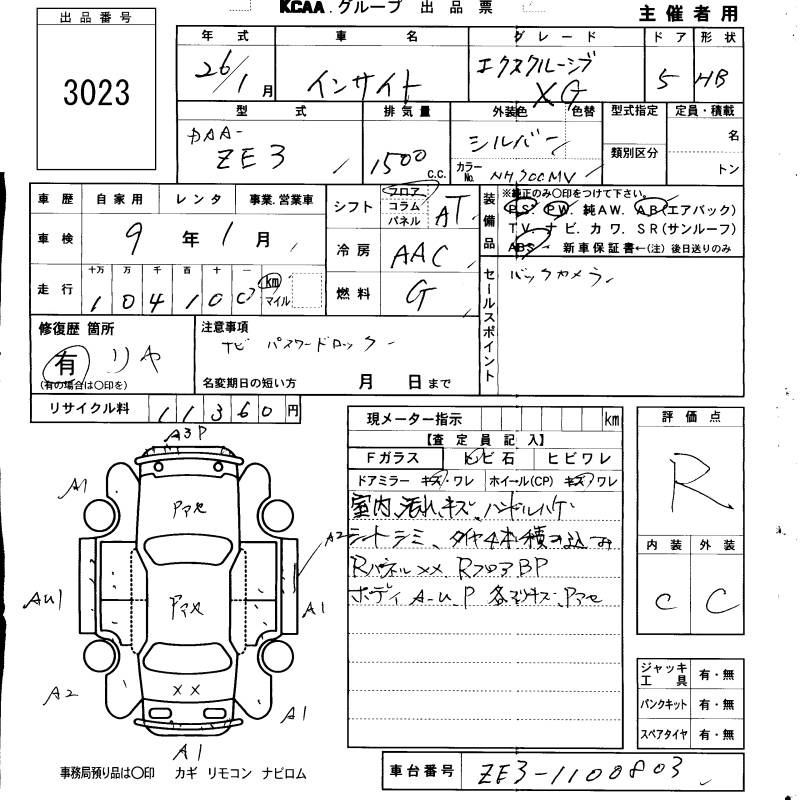 KCAA.グループ 出品票
主催者用
出品番号
3023
年式 車名 グレード ドア 形状
26/1月 インサイト エクスクルーシブ XG 5 HB
型式 排気量 外装色 色替 型式指定 定員・積載
DAA-ZE3 1500 C.C. シルバー 名
カラーNo. NH700MV 類別区分 トン
車歴 自家用 レンタ 事業.営業車
車検 9年1月
走行 十万 万 千 百 十 一
104100 km マイル
シフト フロア コラム パネル AT
冷房 AAC
燃料 G
装備品 ※純正のみ〇印をつけて下さい。
PS. PW. 純AW. AB(エアバック)
TV. ナビ. カワ. SR(サンルーフ)
ABS. 新車保証書←(注)後日送りのみ
セールスポイント バックカメラ
修復歴 箇所
有 リヤ
(有の場合は〇印を)
注意事項
ナビ パスワードロック
名変期日の短い方 月 日まで
リサイクル料 11360円
現メーター指示 km
【査定員記入】
Fガラス トビ石 ヒビワレ
ドアミラー キズ・ワレ ホイール(CP) キズ・ワレ
室内、汚れ、キズ、ハンドルハゲ
シートシミ、タイヤ4本積み込み
Rパネル×× RフロアBP
ボディ A-U.P 各所キズ、アセ
評価点
R
内装 外装
C C
ジャッキ工具 有・無
パンクキット 有・無
スペアタイヤ 有・無
A3P
A1
アセ
A2
AU1
アセ
A1
A2
××
A1
A1
事務局預り品は〇印 カギ リモコン ナビロム
車台番号 ZE3-1100803